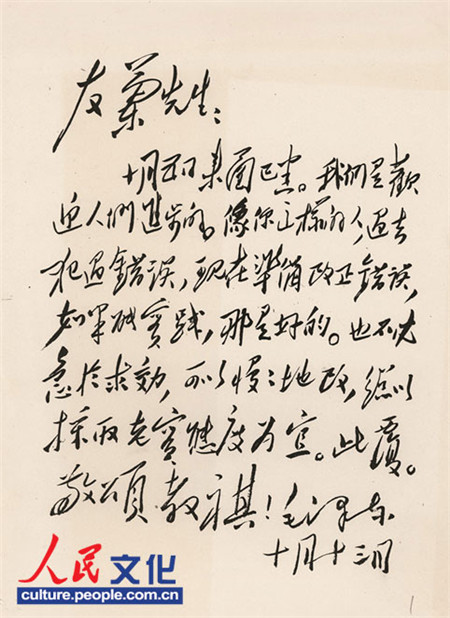 友蘭先生：
十月五日来函已悉。我們是歡
迎人們進步的。像你这樣的人，過去
犯過錯誤，現在準備改正錯誤，
如果能實踐，那是好的。也不必
急於求効，可以慢々地改，總以
採取老實態度为宜。此覆。
敬頌教祺！毛泽东
十月十三日
人民文化
culture.people.com.cn
1